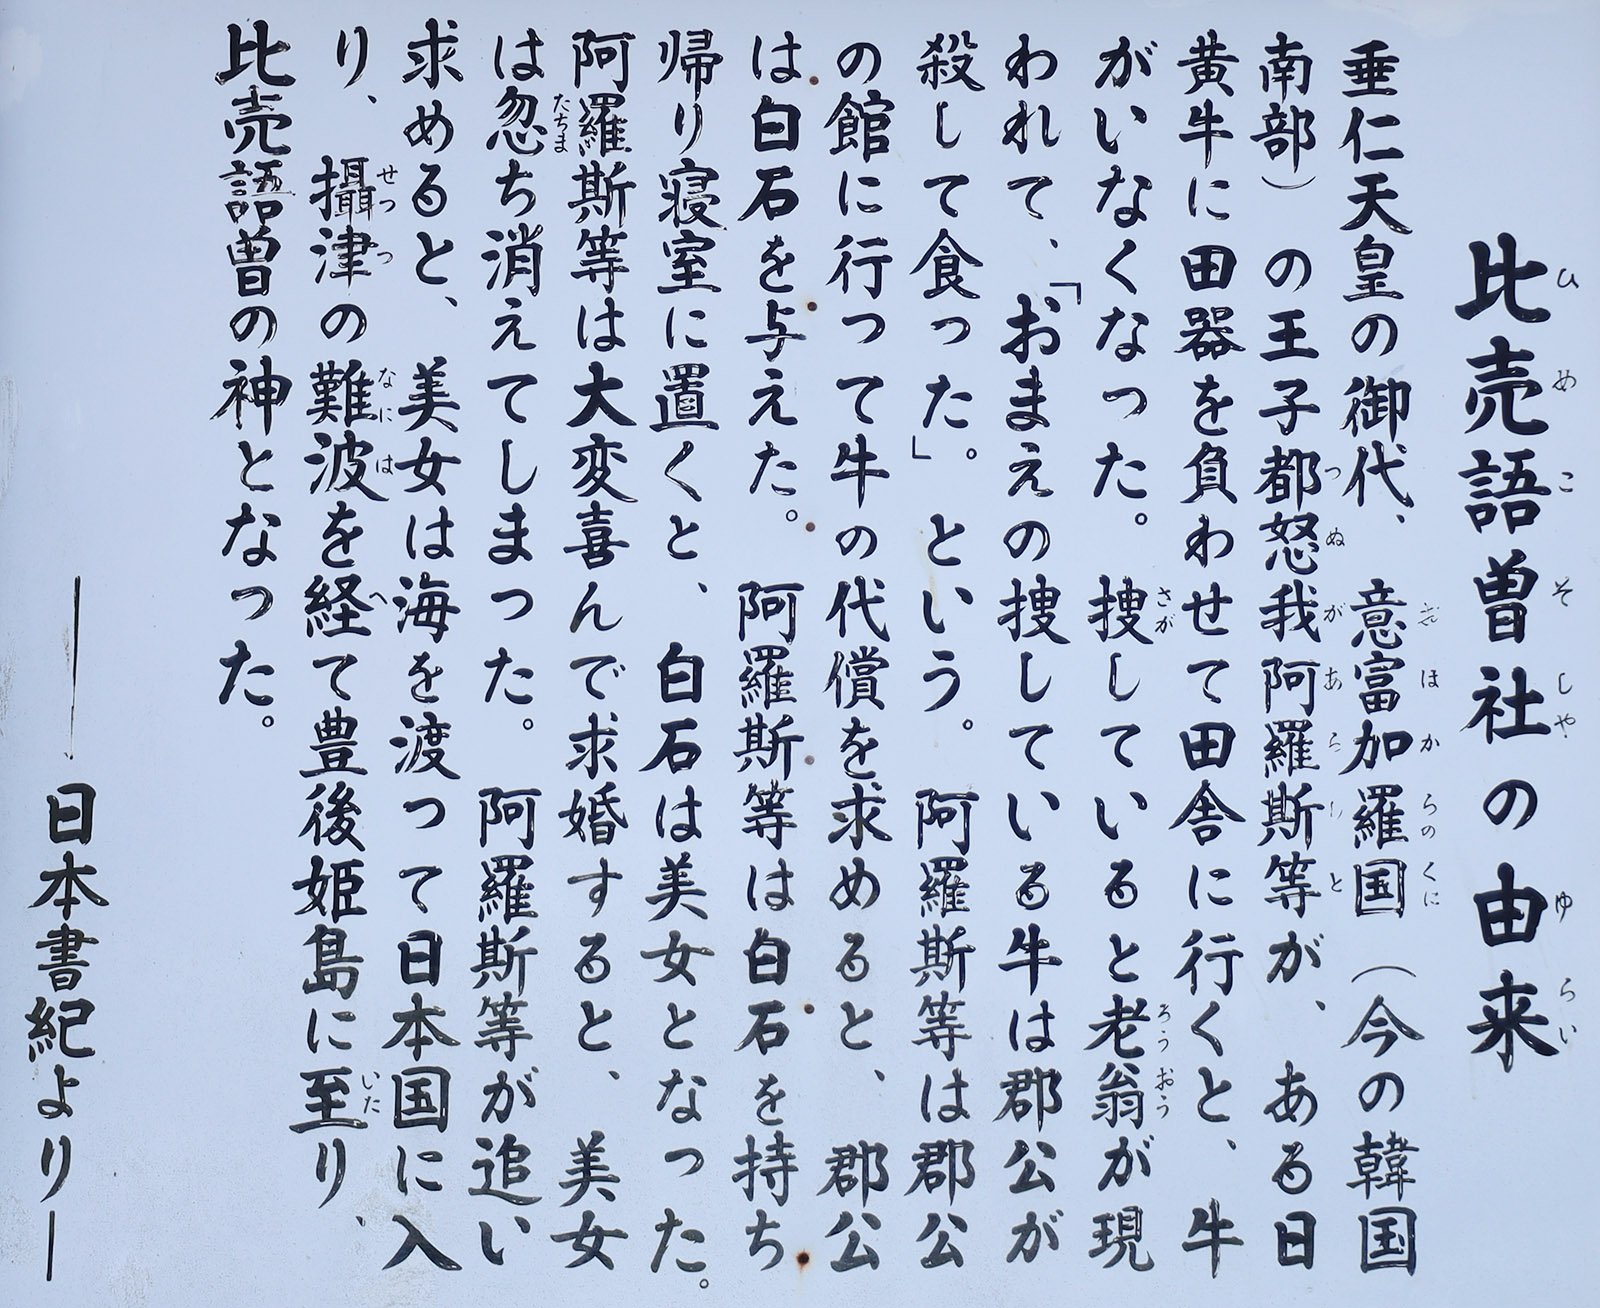 比売語曽社の由来
垂仁天皇の御代、意富加羅国（今の韓国
南部）の王子都怒我阿羅斯等が、ある日
黄牛に田器を負わせて田舎に行くと、牛
がいなくなった。捜していると老翁が現
われて、「おまえの捜している牛は郡公が
殺して食った」。という。阿羅斯等は郡公
の館に行って牛の代償を求めると、郡公
は白石を与えた。阿羅斯等は白石を持ち
帰り寝室に置くと、白石は美女となった。
阿羅斯等は大変喜んで求婚すると、美女
は忽ち消えてしまった。阿羅斯等が追い
求めると、美女は海を渡って日本国に入
り、攝津の難波を経て豊後姫島に至り、
比売語曽の神となった。
―日本書紀より―